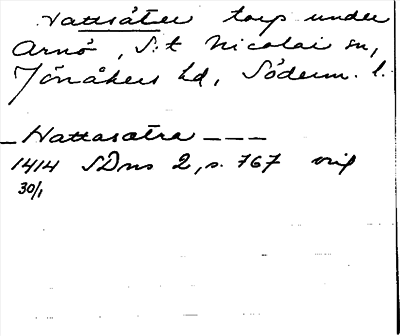 Vattsåter torp under
Arnö, S:t Nicolai sn,
Jönåkers hd, Söderm. l.
_ Hattasætra _ _ _
1414 SDns 2, s. 767 orig
30/1